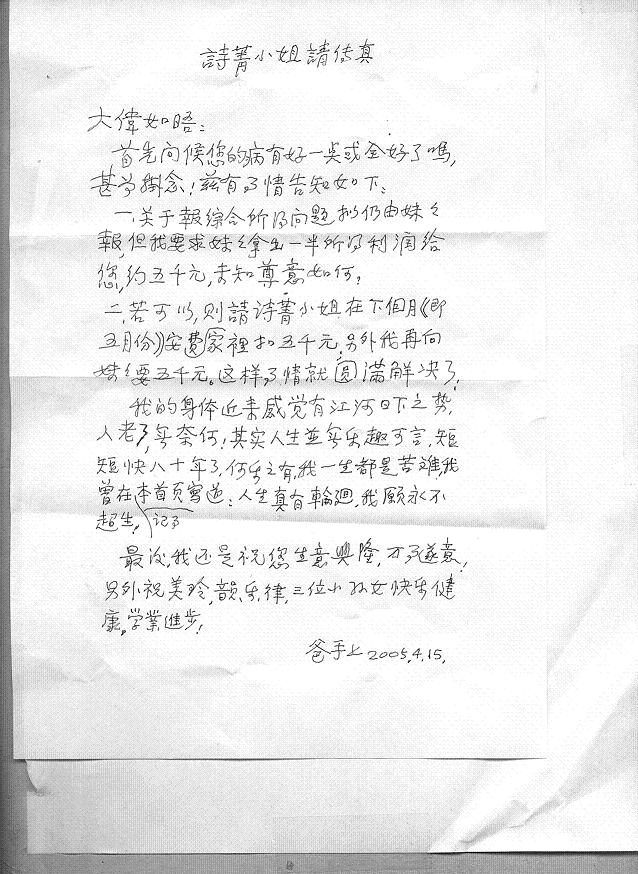 詩菁小姐請传真
大偉如晤:
首先问候您的病有好一点或全好了嗎,
甚为掛念!兹有事情告知如下:
一.关于報综合所得问题拟仍由妹妹
報,但我要求妹妹拿出一半所得利润给
您,约五千元,未知尊意如何?
二.若可以,则請诗菁小姐在下個月《即
五月份》安費家裡扣五千元,另外我再向
妹妹要五千元。这样事情就圆满解决了,
我的身体近来感觉有江河日下之势,
人老了,無奈何!其实人生並無乐趣可言,短
短快八十年了,何乐之有,我一生都是苦难,我
曾在本首页寫道:人生真有輪廻,我願永不
超生!记事
最后,我还是祝您生意興隆,万事遂意!
另外祝美玲,韻,乐,律,三位小孙女快乐健
康,学業進步!
爸手上 2005.4.15.